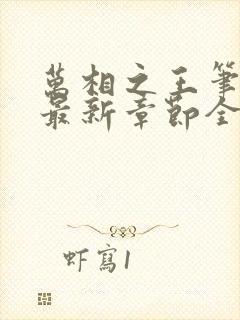 萬相之王筆
最新章節全
虾寫1